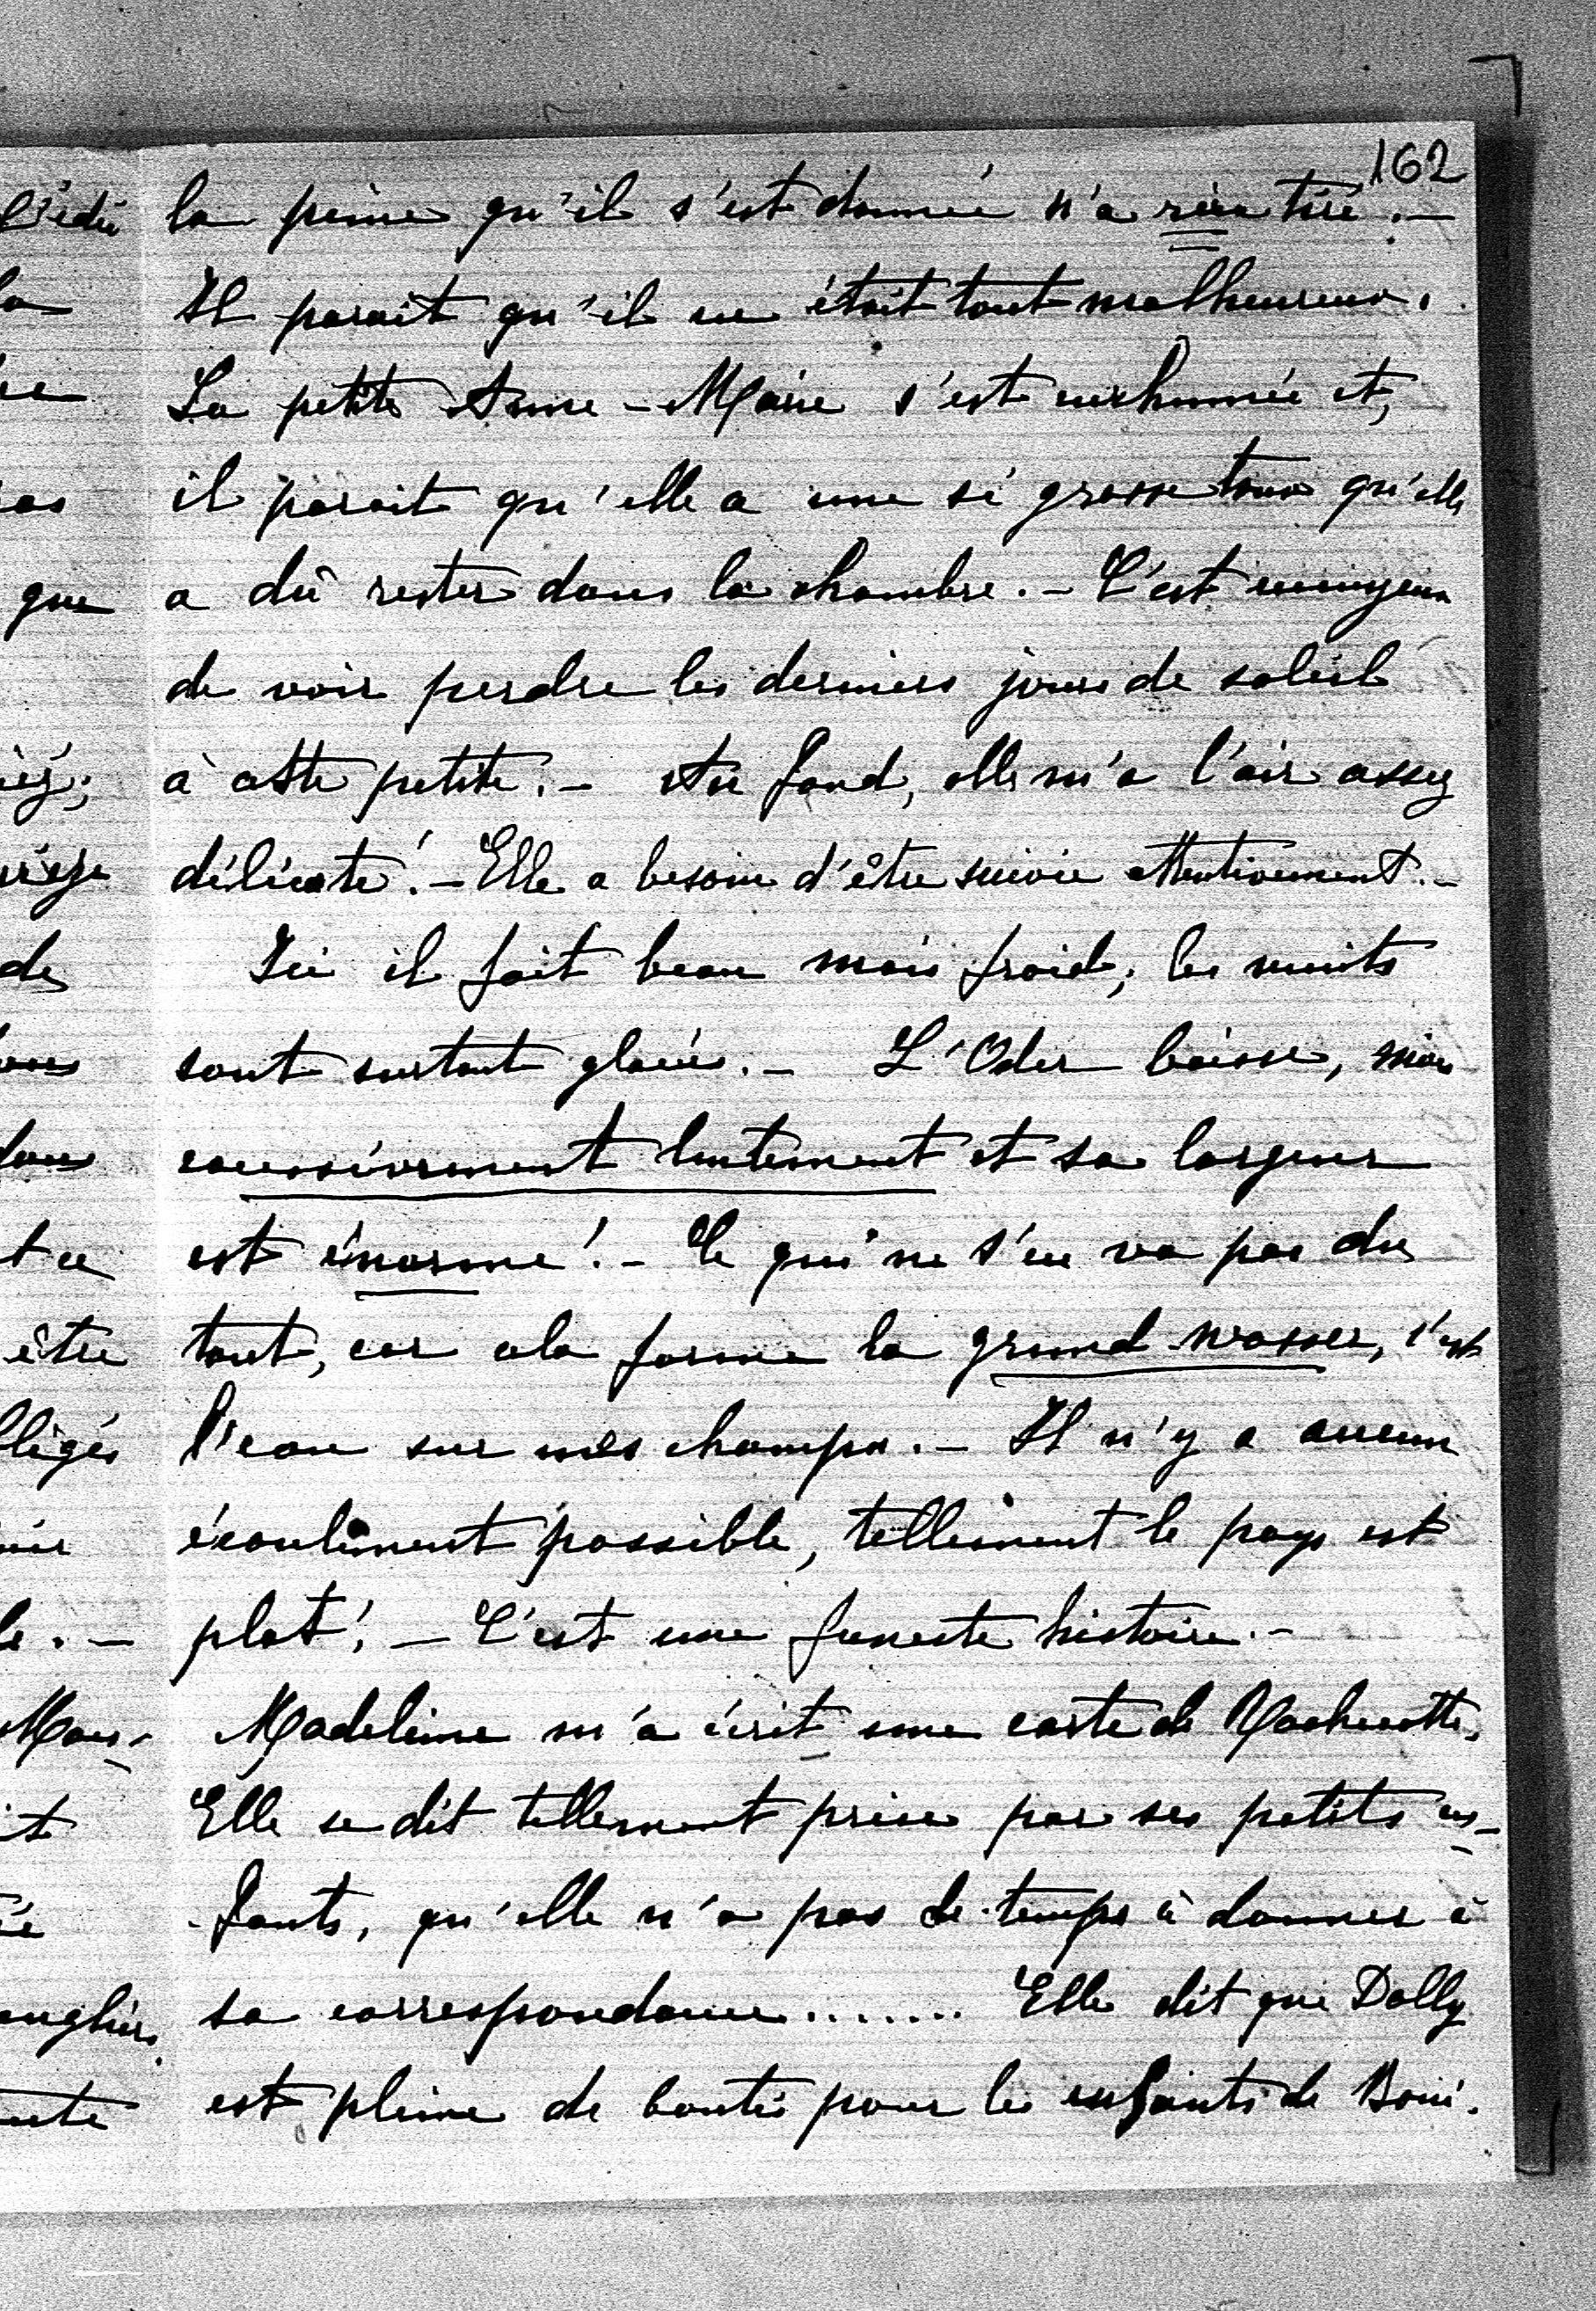 162
la peine qu'il s'est donnée n'a rien tiré. –
Il parait qu'il en était tout malheureux.
La petite Anne-Marie s'est enrhumée et,
il parait qu'elle a une si grosse toux qu'elle
a dû rester dans la chambre. – C'est ennuyeux
de voir perdre les derniers jours de soleil
à cette petite. – Au fond, elle m'a l'air assez
délicate! – Elle a besoin d'être suivie attentivement. –
Ici il fait beau mais froid; les nuits
sont surtout glacées. – L'Oder baisse, mais
excessivement lentement et sa largeur
est énorme! – Ce qui ne s'en va pas du
tout, car cela forme la grund wasser, c'est
l'eau sur mes champs. – Il n'y a aucun
écoulement possible, tellement le pays est
plat! – C'est une funeste histoire. –
Madeleine m'a écrit une carte de
Elle se dit tellement prise par ses petits en-
-fants, qu'elle n'a pas de temps à donner à
sa correspondance....... Elle dit que Dolly
est pleine de bontés pour les enfants de Boni.